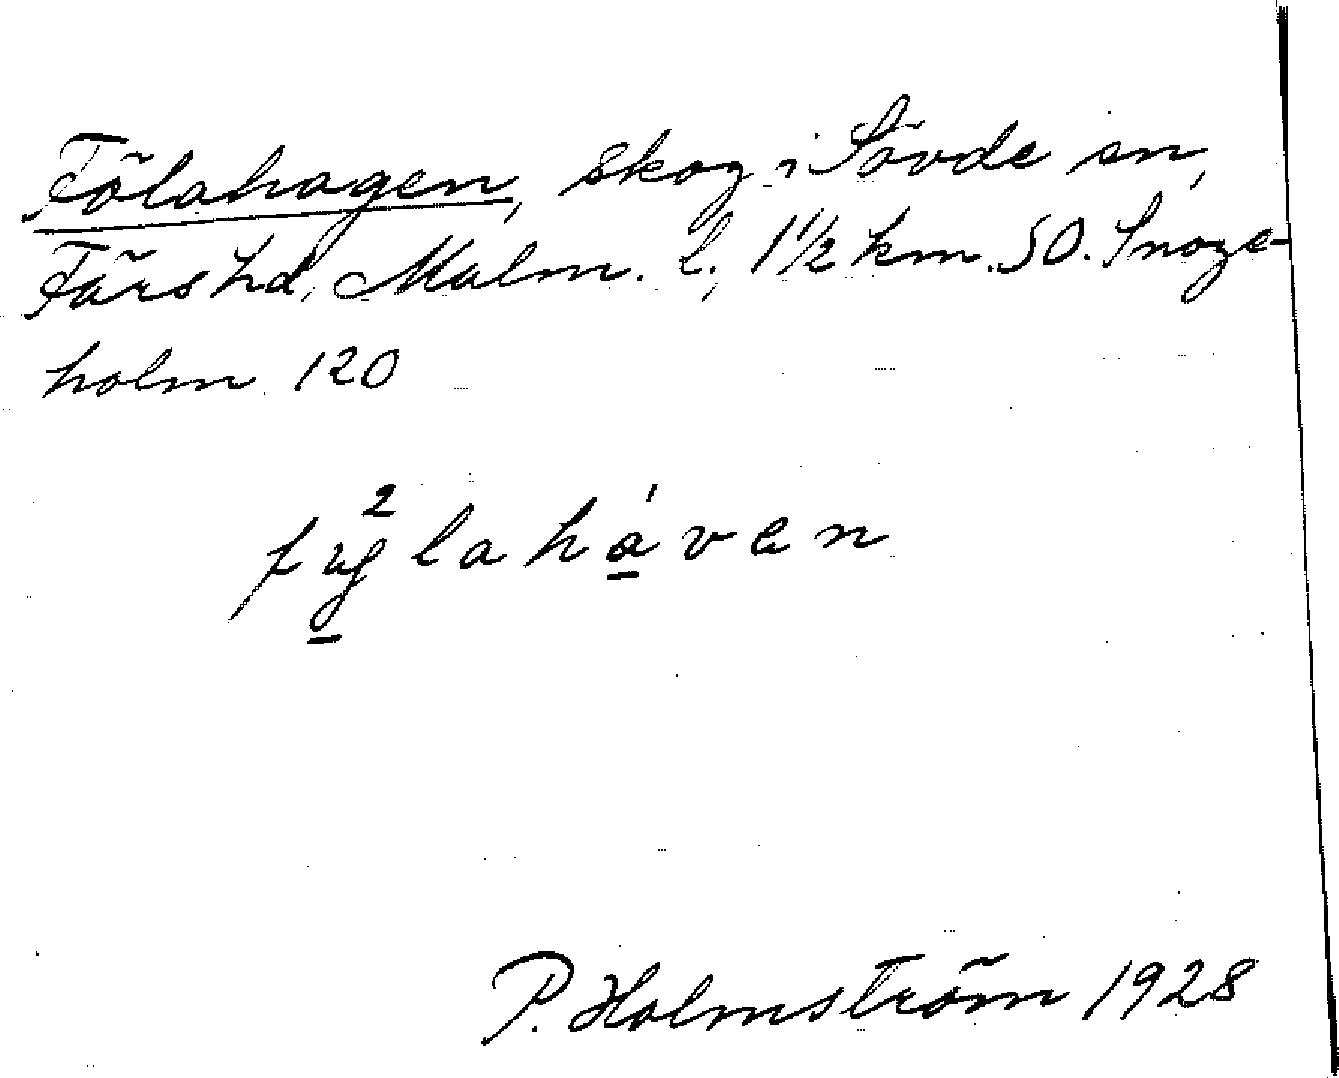 Fölahagen, skog i Sövde sn,
Färs hd, Malm. l., 1½ km. SO. Snoge-
holm 120
fy̲lahá̲ven
P. Holmström 1928